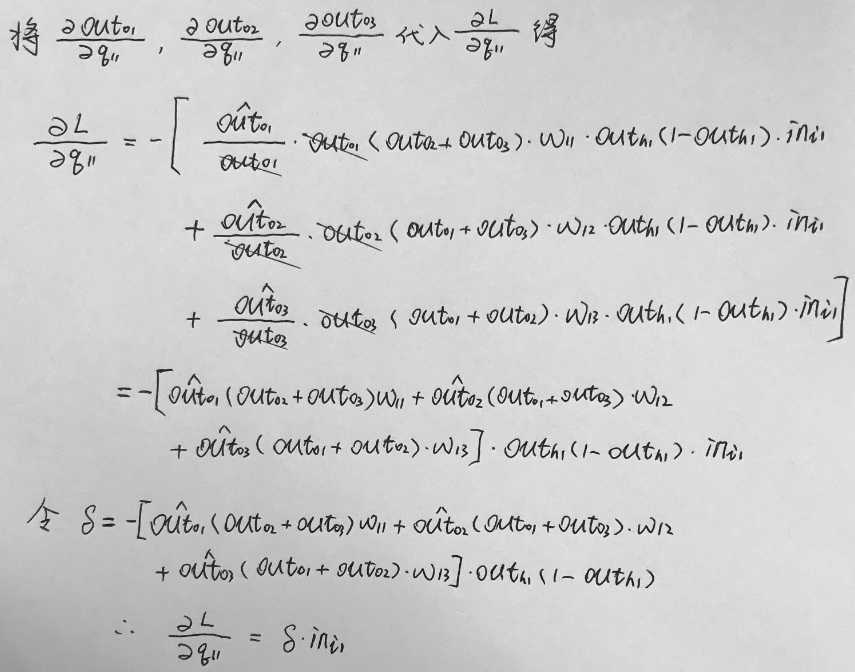 将 ∂out₀₁/∂q₁₁ , ∂out₀₂/∂q₁₁ , ∂out₀₃/∂q₁₁ 代入 ∂L/∂q₁₁ 得
∂L/∂q₁₁ = -[ ôut₀₁/out₀₁ · out₀₁ (out₀₂ + out₀₃) · w₁₁ · outₕ₁ (1 - outₕ₁) · inᵢ₁
+ ôut₀₂/out₀₂ · out₀₂ (out₀₁ + out₀₃) · w₁₂ · outₕ₁ (1 - outₕ₁) · inᵢ₁
+ ôut₀₃/out₀₃ · out₀₃ (out₀₁ + out₀₂) · w₁₃ · outₕ₁ (1 - outₕ₁) · inᵢ₁ ]
= -[ ôut₀₁ (out₀₂ + out₀₃) w₁₁ + ôut₀₂ (out₀₁ + out₀₃) · w₁₂
+ ôut₀₃ (out₀₁ + out₀₂) · w₁₃ ] · outₕ₁ (1 - outₕ₁) · inᵢ₁
令 δ = -[ ôut₀₁ (out₀₂ + out₀₃) w₁₁ + ôut₀₂ (out₀₁ + out₀₃) · w₁₂
+ ôut₀₃ (out₀₁ + out₀₂) · w₁₃ ] · outₕ₁ (1 - outₕ₁)
∴ ∂L/∂q₁₁ = δ · inᵢ₁